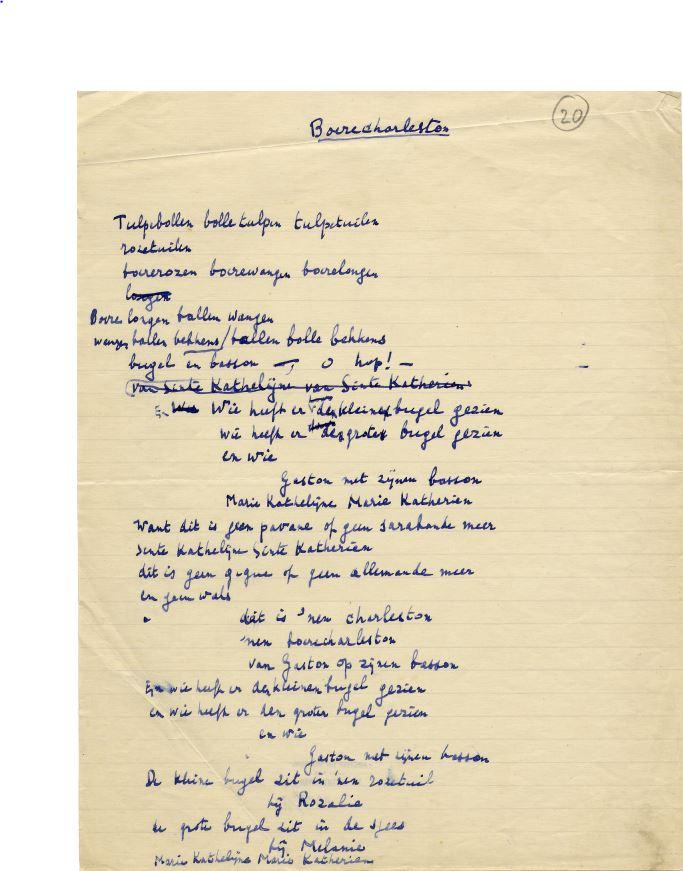 20
Boerecharleston
Tulpebollen bolle tulpen tulpetuilen
rozetuilen
boererozen boerewangen boerelongen
longen
Boere longen ballen wangen
wangen ballen bekkens / ballen bolle bekkens
bugel en basson —, o hop! —
van Sinte Kathelijne van Sinte Katherien
En Wie Wie heeft er den kleinen bugel gezien
wie heeft er den groten bugel gezien
en wie
Gaston met zijnen basson
Marie Kathelijne Marie Katherien
Want dit is geen pavane of geen sarabande meer
Sinte Kathelijne Sinte Katherien
dit is geen gigue of geen allemande meer
en geen wals
dit is 'nen charleston
'nen boerecharleston
van Gaston op zijnen basson
En wie heeft er den kleinen bugel gezien
en wie heeft er den groten bugel gezien
en wie
Gaston met zijnen basson
De kleine bugel zit in 'nen rozetuil
bij Rozalie
de grote bugel zit in de sjees
bij Melanie
Marie Kathelijne Marie Katherien